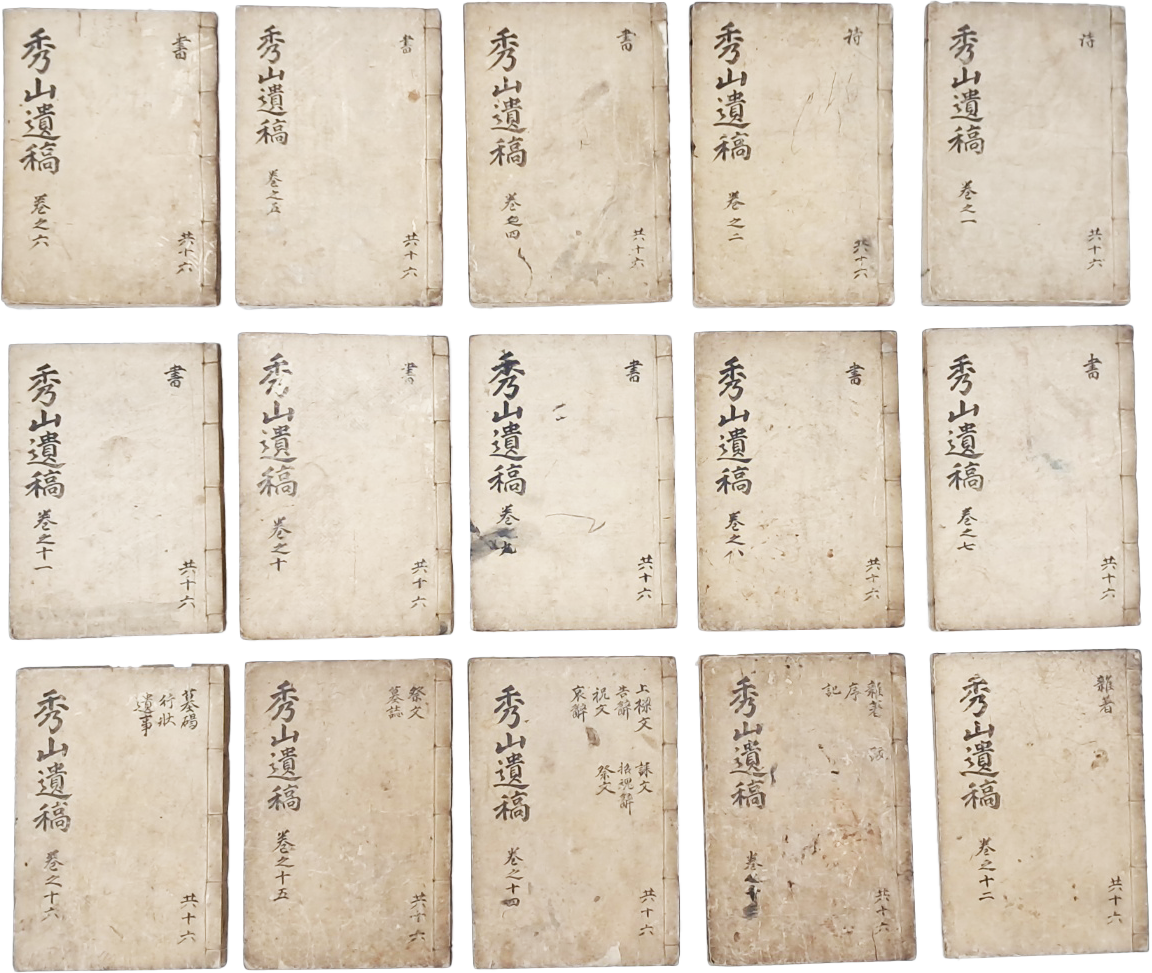 詩
共十六
秀山遺稿 卷之一
詩
共十六
秀山遺稿 卷之二
書
共十六
秀山遺稿 卷之四
書
共十六
秀山遺稿 卷之五
書
共十六
秀山遺稿 卷之六
書
共十六
秀山遺稿 卷之七
書
共十六
秀山遺稿 卷之八
書
共十六
秀山遺稿 卷之九
書
共十六
秀山遺稿 卷之十
書
共十六
秀山遺稿 卷之十一
雜著
共十六
秀山遺稿 卷之十二
雜著
序
記
共十六
秀山遺稿 卷之十三
上樑文 誄文
告辭 招魂辭
祝文 祭文
哀辭
共十六
秀山遺稿 卷之十四
祭文
墓誌
共十六
秀山遺稿 卷之十五
墓碣
行狀
遺事
共十六
秀山遺稿 卷之十六